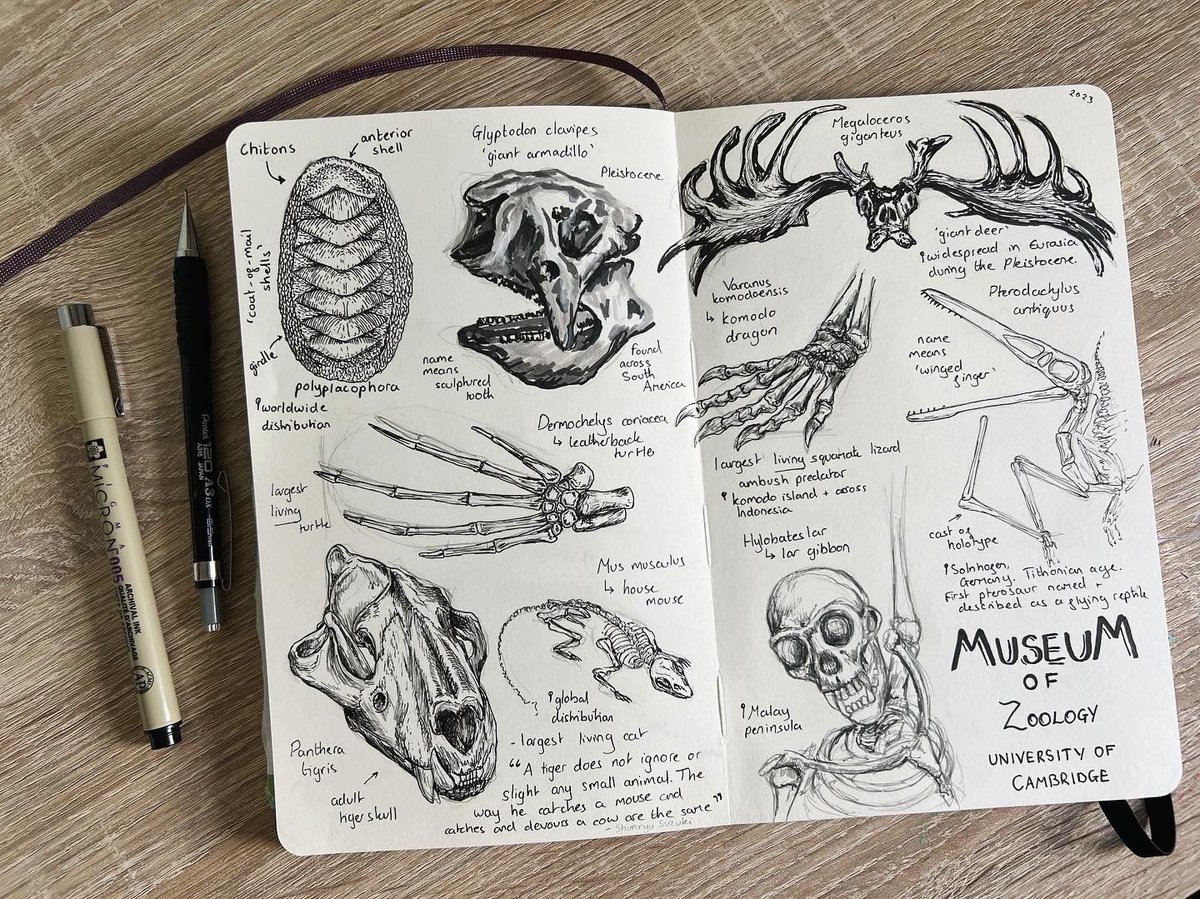 Chitons
anterior
shell
'coat-of-mail
shells'
girdle
polyplacophora
worldwide
distribution
Glyptodon clavipes
'giant armadillo'
Pleistocene
name
means
sculptured
tooth
found
across
South
America
Dermochelys coriacea
↳ leatherback
turtle
largest
living
turtle
Mus musculus
↳ house
mouse
global
distribution
Panthera
tigris
adult
tiger skull
- largest living cat
"A tiger does not ignore or
slight any small animal. The
way he catches a mouse and
catches and devours a cow are the same"
- Shunryu Suzuki
2023
Megaloceros
giganteus
'giant deer'
widespread in Eurasia
during the Pleistocene.
Varanus
komodoensis
↳ komodo
dragon
largest living squamate lizard
ambush predator
komodo island + across
Indonesia
Pterodactylus
antiquus
name
means
'winged
finger'
cast of
holotype
Solnhofen,
Germany. Tithonian age.
First pterosaur named +
described as a flying reptile
Hylobates lar
↳ lar gibbon
Malay
peninsula
MUSEUM
OF
ZOOLOGY
UNIVERSITY OF
CAMBRIDGE
SAKURA
PIGMA
MICRON
005
ARCHIVAL INK
QUALITÉ D'ARCHIVAGE
AP
Pentel 120 A3DX
A315 JAPAN